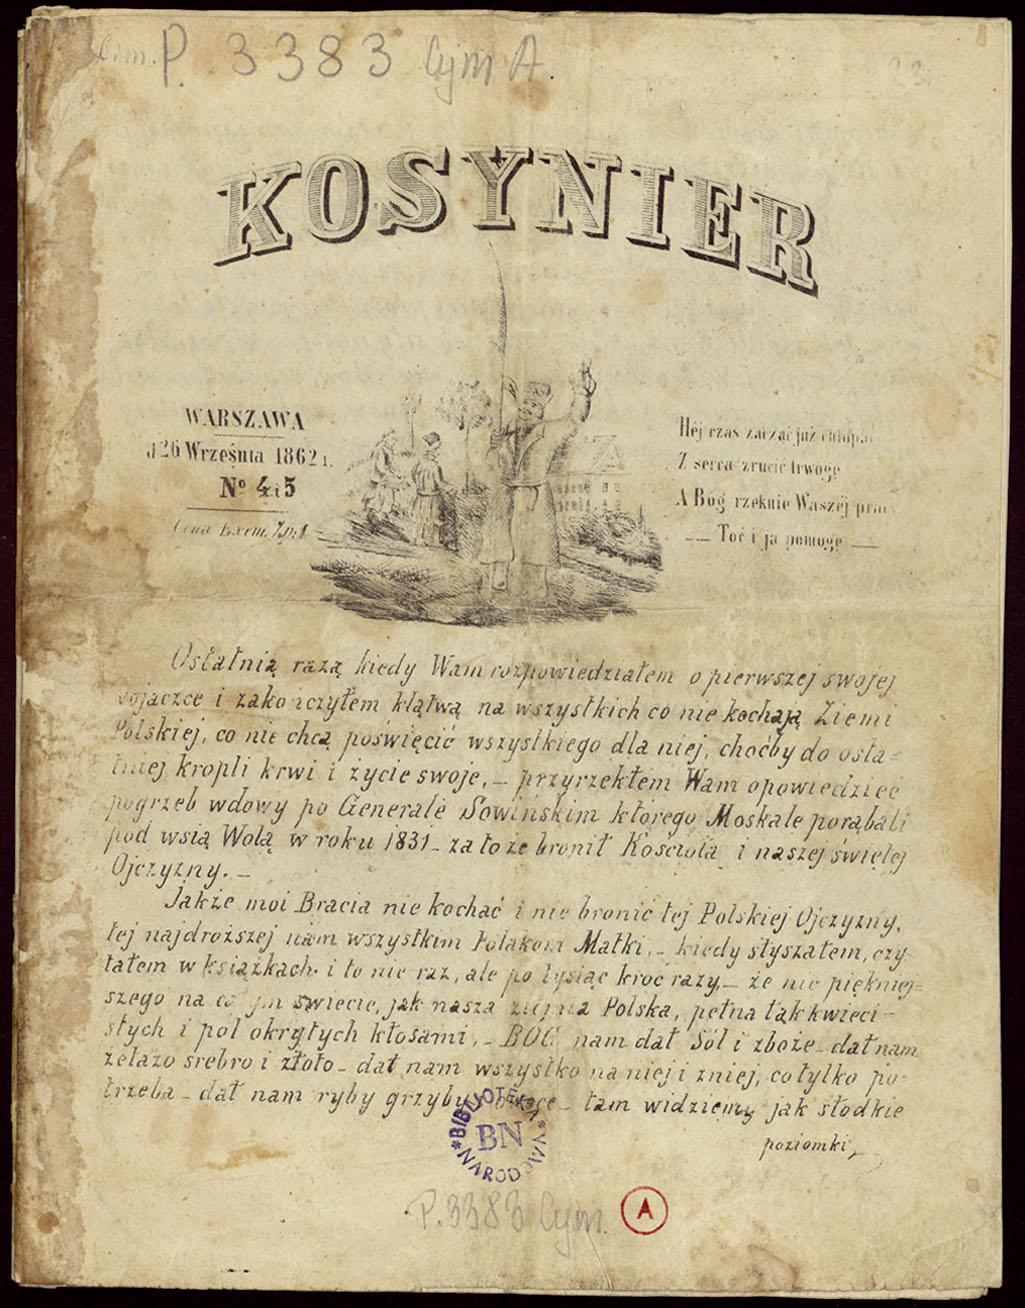 Cim. P. 3383 Cym A.
23.
KOSYNIER
WARSZAWA
d 26 Września 1862 r.
Nº 4 i 5
Cena Exem. Zł: 1
Héj czas zacząć już chłopa
Z serca zrucić trwogę
A Bóg rzeknie Waszéj prac
— Toć i ja pomogę —
Ostatnią razą kiedy Wam rozpowiedziałem o pierwszej swojej
wojaczce i zakończyłem klątwą na wszystkich co nie kochają Ziemi
Polskiej, co nie chcą poświęcić wszystkiego dla niej, choćby do osta-
tniej kropli krwi i życie swoje, – przyrzekłem Wam opowiedzieć
pogrzeb wdowy po Generale Sowińskim którego Moskale porąbali
pod wsią Wolą w roku 1831 – za to że bronił Kościoła i naszej świętej
Ojczyzny. –
Jakże moi Bracia nie kochać i nie bronić tej Polskiej Ojczyzny,
tej najdroższej nam wszystkim Polakom Matki, – kiedy słyszałem, czy-
tałem w książkach i to nie raz, ale po tysiąc kroć razy, – że nic piękniej-
szego na całym świecie, jak nasza Polska, pełna łąk kwieci-
stych i pól okrytych kłosami, – BÓG nam dał Sól i zboże – dał nam
żelazo srebro i złoto – dał nam wszystko na niej i z niej, co tylko po-
trzeba – dał nam ryby grzyby – tam widziemy jak słodkie
poziomki,
BIBLIOTEKA NARODOWA
BN
P. 3383 Cym.
A